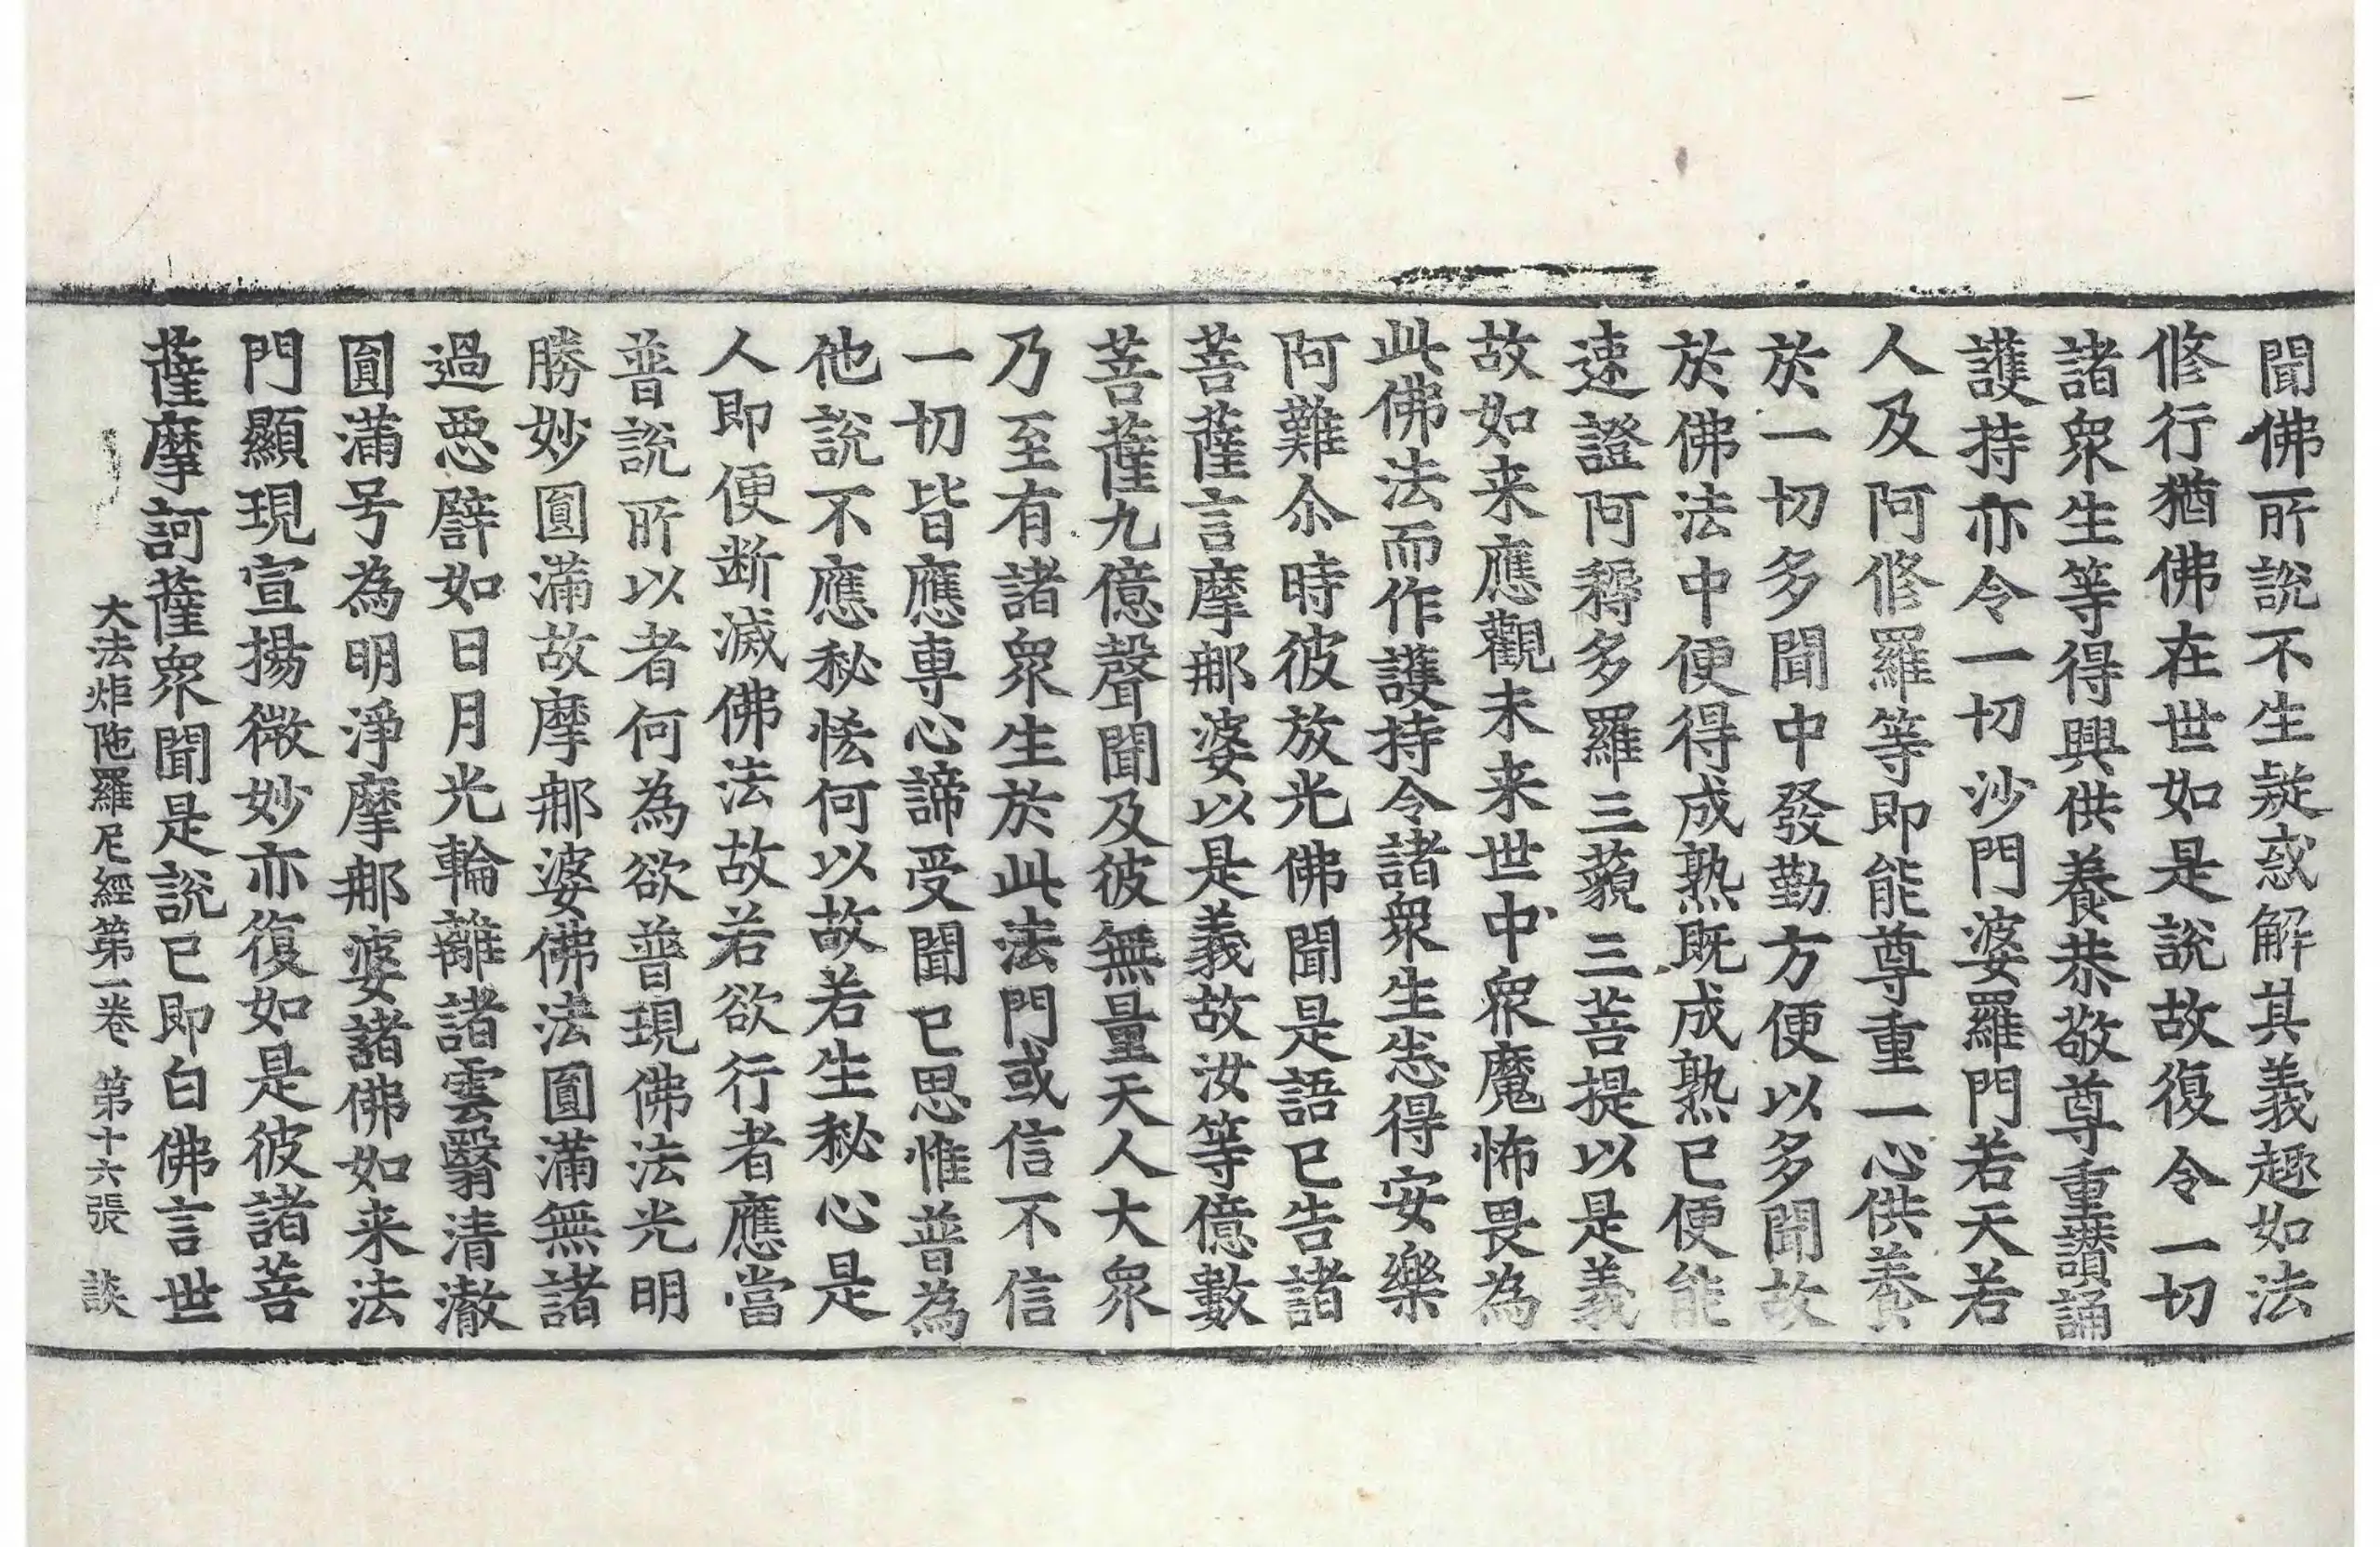 聞佛所說不生疑惑解其義趣如法
修行猶佛在世如是說故復令一切
諸衆生等得興供養恭敬尊重讚誦
護持亦令一切沙門婆羅門若天若
人及阿修羅等即能尊重一心供養
於一切多聞中發勤方便以多聞故
於佛法中便得成熟旣成熟已便能
速證阿耨多羅三藐三菩提以是義
故如来應觀未来世中衆魔怖畏為
此佛法而作護持令諸衆生悉得安樂
阿難尒時彼放光佛聞是語已告諸
菩薩言摩那婆以是義故汝等億數
菩薩九億聲聞及彼無量天人大衆
乃至有諸衆生於此法門或信不信
一切皆應專心諦受聞已思惟普為
他說不應秘悋何以故若生秘心是
人即便断滅佛法故若欲行者應當
普說所以者何為欲普現佛法光明
勝妙圓滿故摩那婆佛法圓滿無諸
過惡譬如日月光輪離諸雲翳清澈
圓滿号為明淨摩那婆諸佛如来法
門顯現宣揚微妙亦復如是彼諸菩
薩摩訶薩衆聞是說已即白佛言世
大法炬陁羅尼經第一卷 第十六張 談